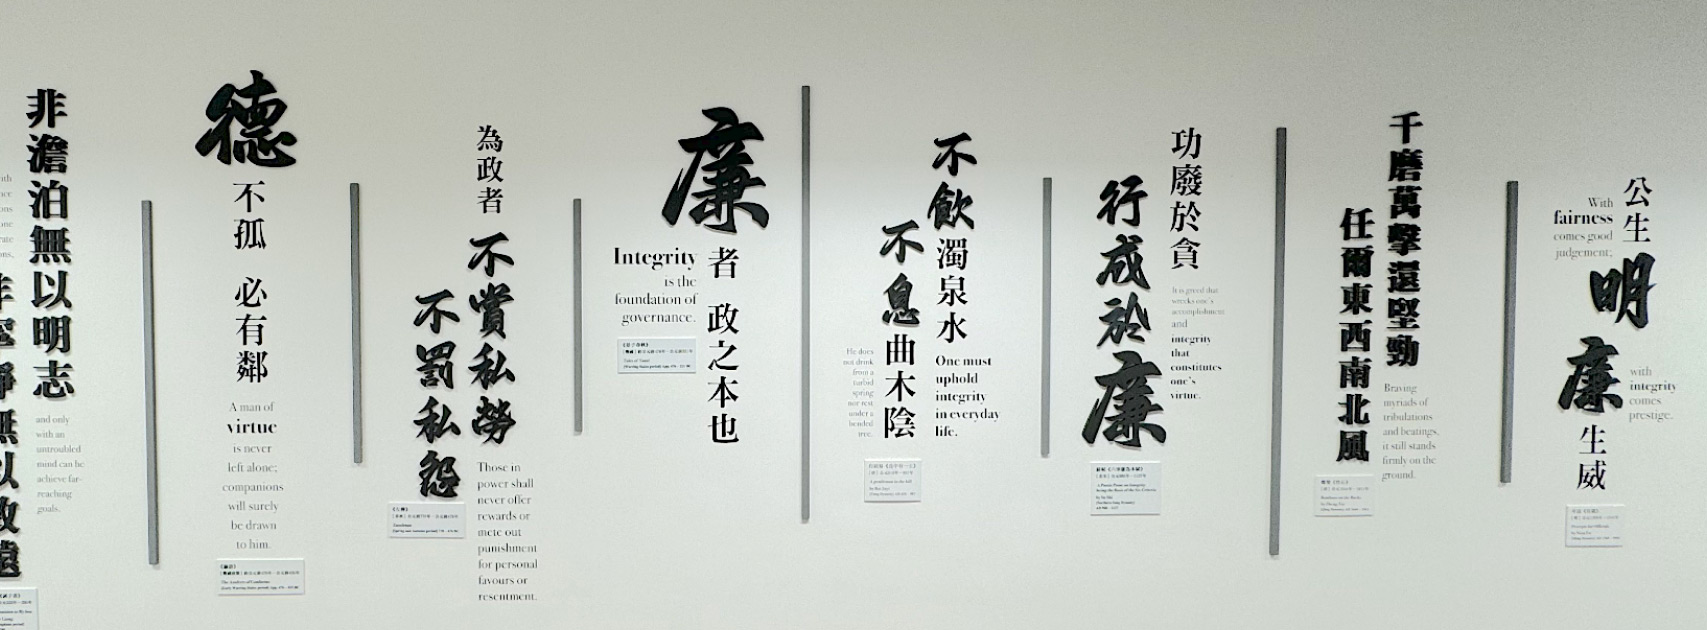 非澹泊無以明志
and only
with an
untroubled
mind can be
achieve far-
reaching
goals.
德不孤 必有鄰
A man of
virtue
is never
left alone;
companions
will surely
be drawn
to him.
《論語》
The Analects of Confucius
為政者不賞私勞
不罰私怨
Those in
power shall
never offer
rewards or
mete out
punishment
for personal
favours or
resentment.
《左傳》
廉者 政之本也
Integrity
is the
foundation of
governance.
不飲濁泉水
不息曲木陰
He does
not drink
from a
turbid
spring
nor rest
under a
bended
tree.
One must
uphold
integrity
in everyday
life.
功廢於貪
行成於廉
It is greed that
wrecks one's
accomplishment
and
integrity
that
constitutes
one's
virtue.
千磨萬擊還堅勁
任爾東西南北風
Braving
myriads of
tribulations
and beatings,
it still stands
firmly on the
ground.
公生明
廉生威
With
fairness
comes good
judgement;
with
integrity
comes
prestige.